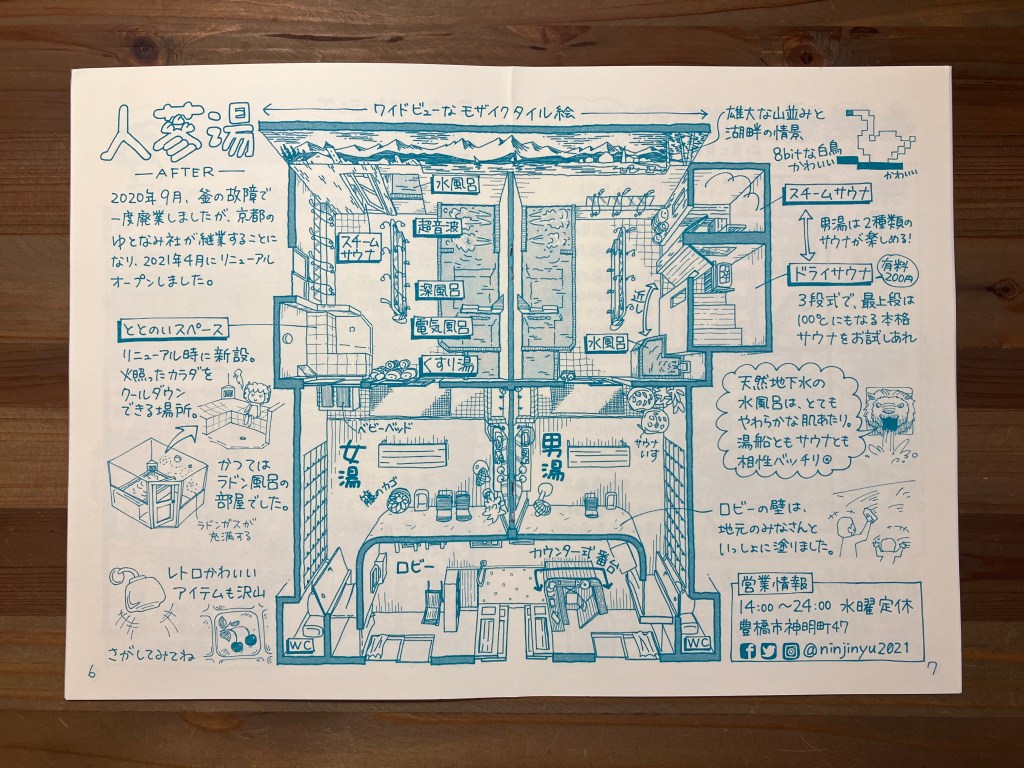 人蔘湯
AFTER
2020年9月、釜の故障で
一度廃業しましたが、京都の
ゆとなみ社が継業することに
なり、2021年4月にリニューアル
オープンしました。
ととのいスペース
リニューアル時に新設。
火照ったカラダを
クールダウン
できる場所。
かつては
ラドン風呂の
部屋でした。
ラドンガスが
充満する
レトロかわいい
アイテムも沢山
さがしてみてね
6
ワイドビューなモザイクタイル絵
水風呂
超音波
スチーム
サウナ
深風呂
電気風呂
くすり湯
近い
水風呂
ベビーベッド
女湯
男湯
サウナ
いす
籐のカゴ
ロビー
カウンター式番台
WC
WC
雄大な山並みと
湖畔の情景
8bitな白鳥
かわいい
かわいい
スチームサウナ
男湯は2種類の
サウナが楽しめる!
ドライサウナ
有料
200円
3段式で、最上段は
100℃にもなる本格
サウナをお試しあれ
天然地下水の
水風呂は、とても
やわらかな肌あたり。
湯船ともサウナとも
相性バッチリ◎
ロビーの壁は、
地元のみなさんと
いっしょに塗りました。
営業情報
14:00〜24:00 水曜定休
豊橋市神明町47
@ninjinyu2021
7